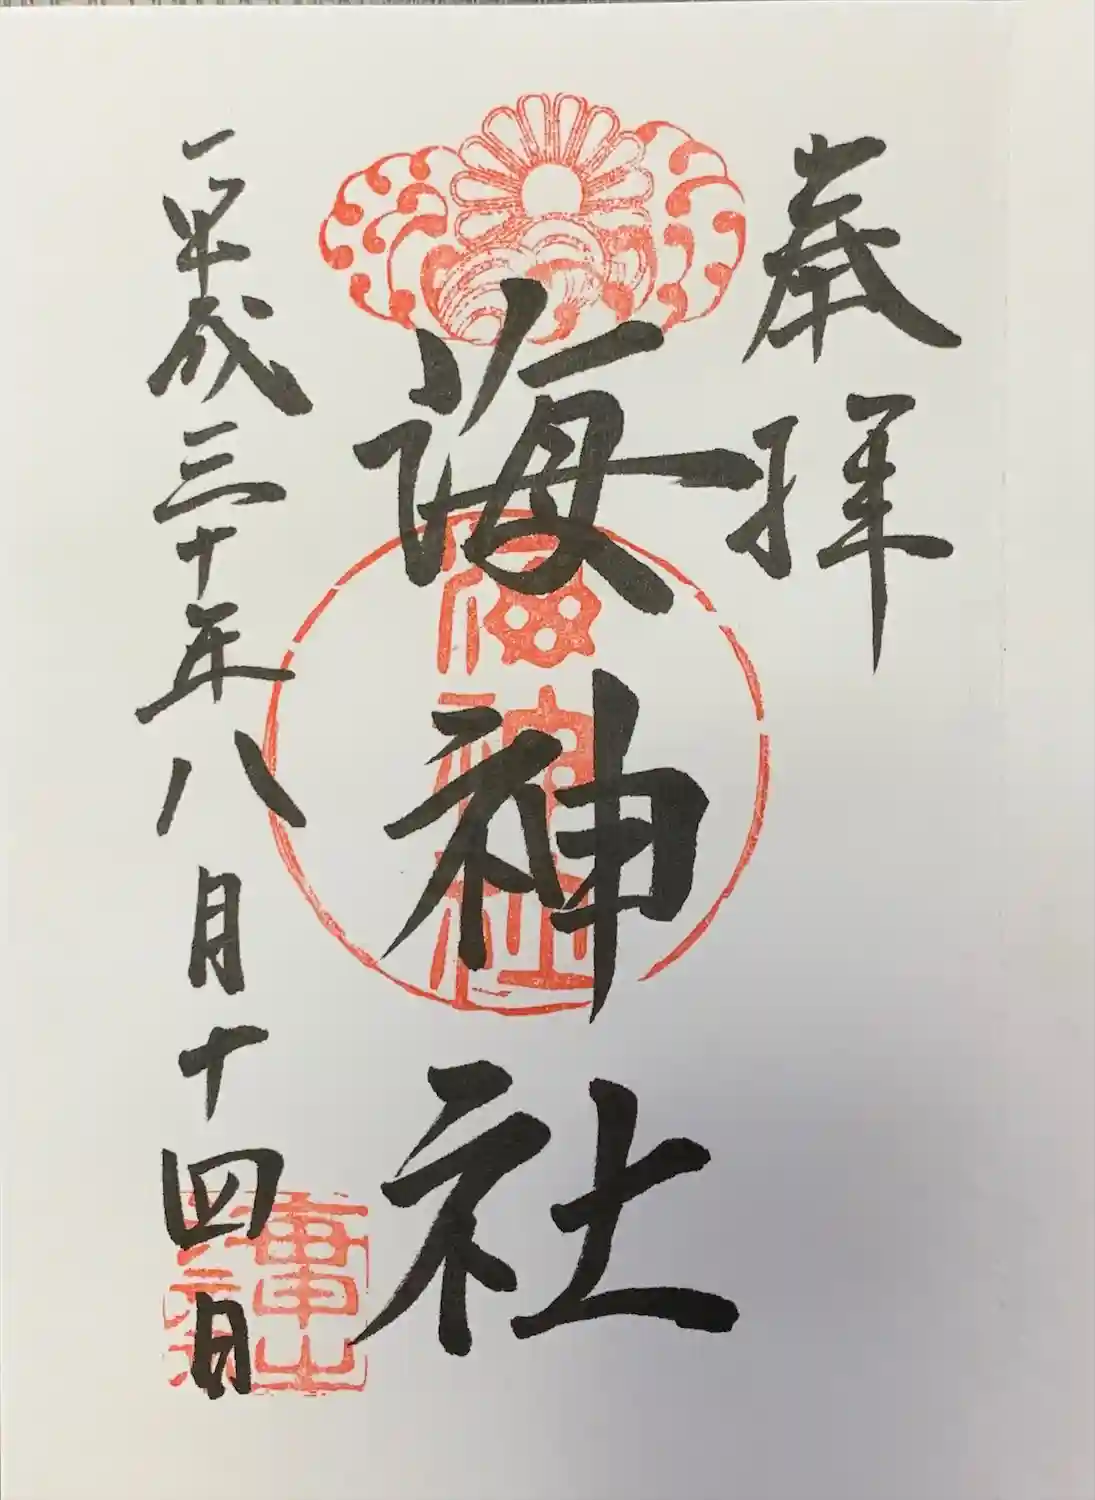 奉拝
海神社
海神社
平成三十年八月十四日